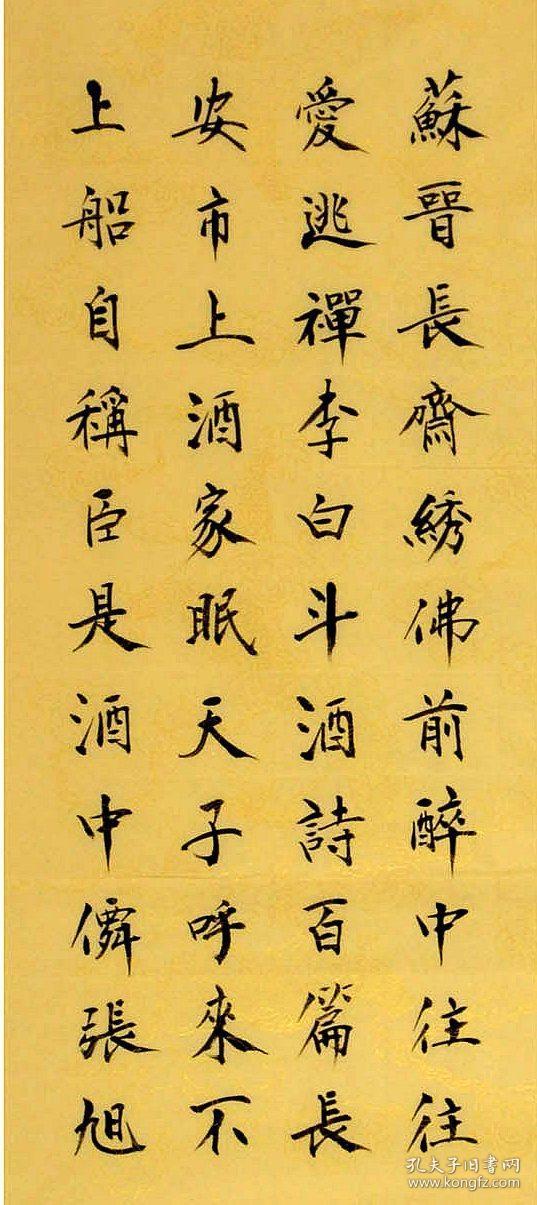 蘇晉長齋綉佛前醉中往往
愛逃禪李白斗酒詩百篇長
安市上酒家眠天子呼來不
上船自稱臣是酒中僊張旭
孔夫子旧书网
www.kongfz.com